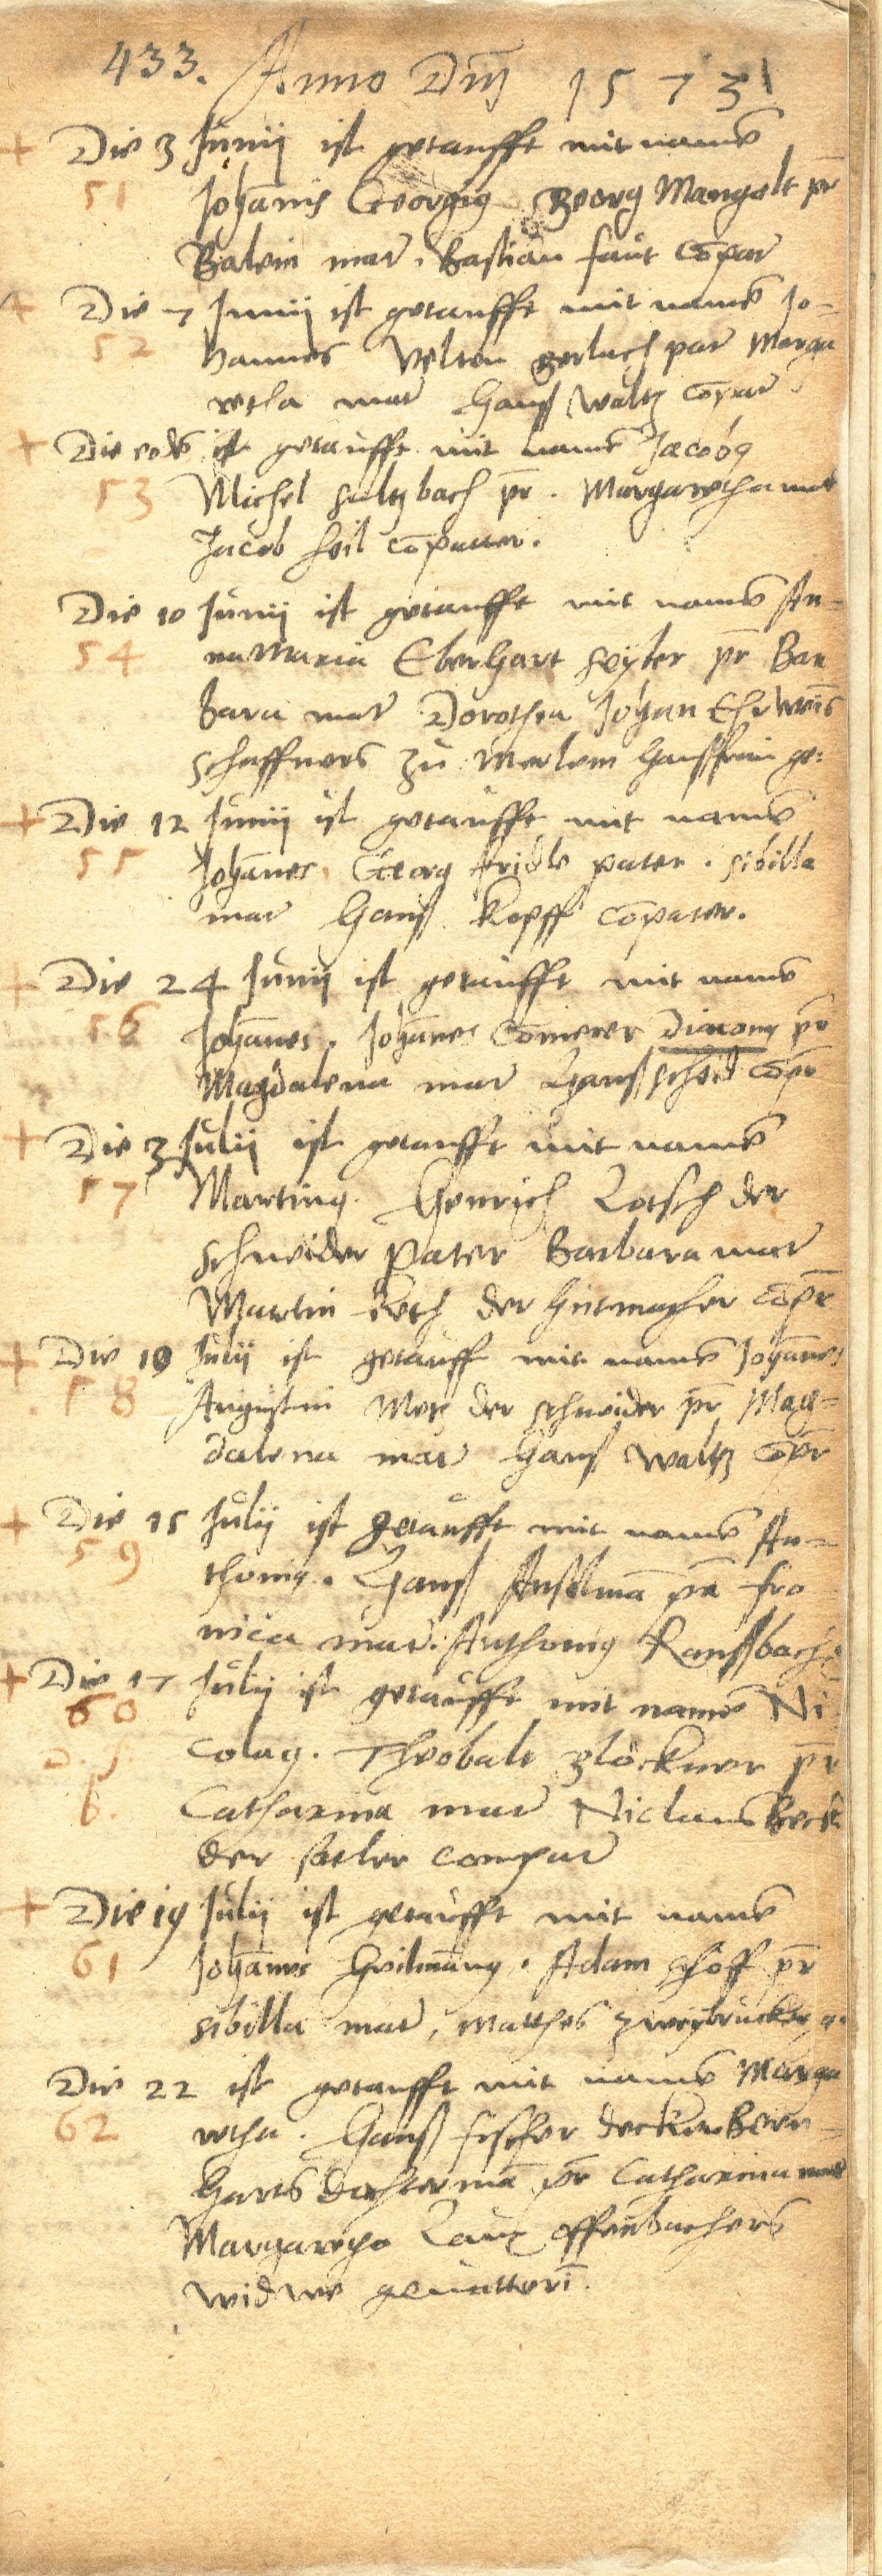 433. Anno Dm̄ 1573
+ Die 3 Junij ist getaufft mit namē
51 Johānis Georgius Georg Mangolt pr̄
mar. Bastian faut Cōpar
+ Die 7 Junij ist getaufft mit namē Jo-
52 hannes Velten gerlach par Marga
retha mar Hanß Waltz Cōpar
+ Die eodē ist getaufft mit namē Jacobq
53 Michel sultzbach pr̄. Margaretha mar
Jacob heil Cōpatter.
Die 10 Junij ist getaufft mit namē An-
54 na Maria Eberhart seyler pr̄ Bar
bara mar Dorothea Johan
schaffners zu Hausfrau ge:
+ Die 12 Junij ist getaufft mit namē
55 Johānes Georg fridle pater. sibilla
mar Hanß Kopff Cōpater.
+ Die 24 Junij ist getaufft mit namē
56 Johānes. Johānes Cōmerer Diaconq pr̄
Magdalena mar Hanß scheid Cōpr̄
+ Die 3 Julij ist getaufft mit namē
57 Martinq. Henrich Lotsch der
schneider pater Barbara mar
Martin der hutmacher Cōpr̄
+ Die 10 Julij ist getaufft mit namē Johānes
58 Augustin Metz der schneider pr̄ Mag-
dalena mar Hanß Waltz Cōpr̄
+ Die 15 Julij ist getaufft mit namē An-
59 thoniq. Hanß Anselmā pr̄ fro
nica mar. Anthoniq Ranßbach
+ Die 17 Julij ist getaufft mit namē Ni
60 colaq. Theobalt glöckner pr̄
6. Catharina mar Niclaus Beck
der satler compar
+ Die 19 Julij ist getaufft mit namē
61 Johānes Heilmānq. Adam schöff pr̄
sibilla mar, Matthes zweybrucker
Die 22 ist getaufft mit namē Marga
62 retha. Hanß fischer decken Bern-
harts dochtermā pr̄ Catharina mar
Margaretha Laux offenbachers
widwe gevatteri.